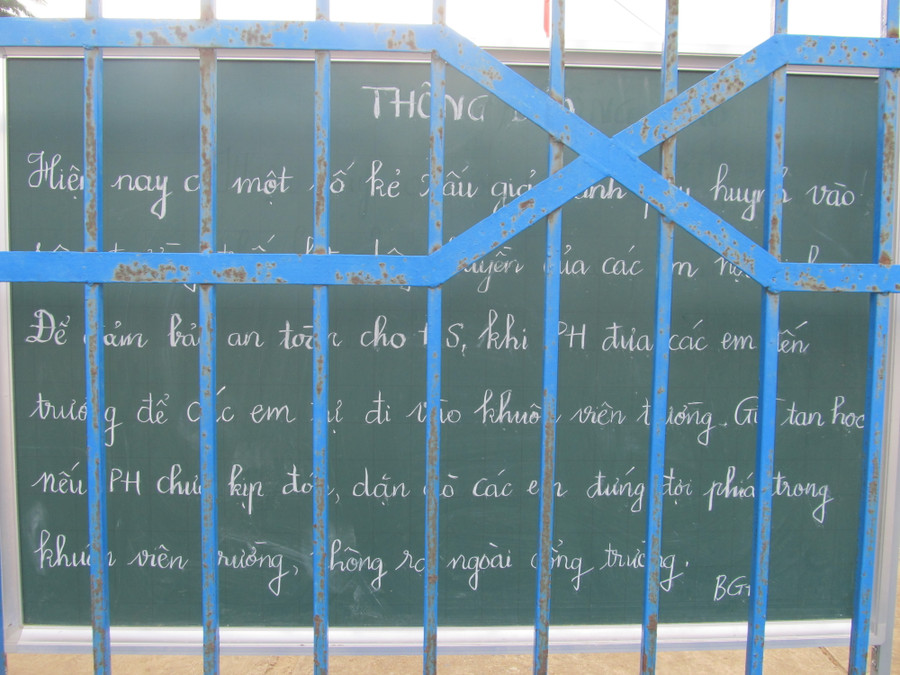 THÔNG BÁO
Hiện nay có một số kẻ xấu giả danh phụ huynh vào
của các em
Để đảm bảo an toàn cho HS, khi PH đưa các em đến
trường để các em tự đi vào khuôn viên trường. Giờ tan học
nếu PH chưa kịp đón, dặn dò các em đứng đợi phía trong
khuôn viên trường, không ra ngoài cổng trường.
BGH